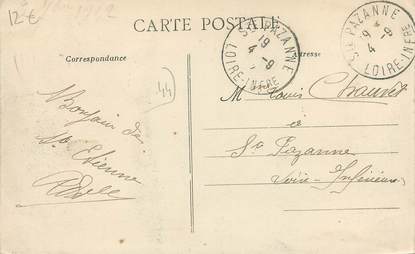 12€
CARTE POSTALE
Correspondance
Adresse
STE PAZANNE
19
4 - 9
LOIRE-INFRE
STE PAZANNE
19
4 - 9
LOIRE-INFRE
44
Bonjour de
St Etienne
Adèle
M Louis Chauvet
à
Ste Pazanne
Loire-Inférieure